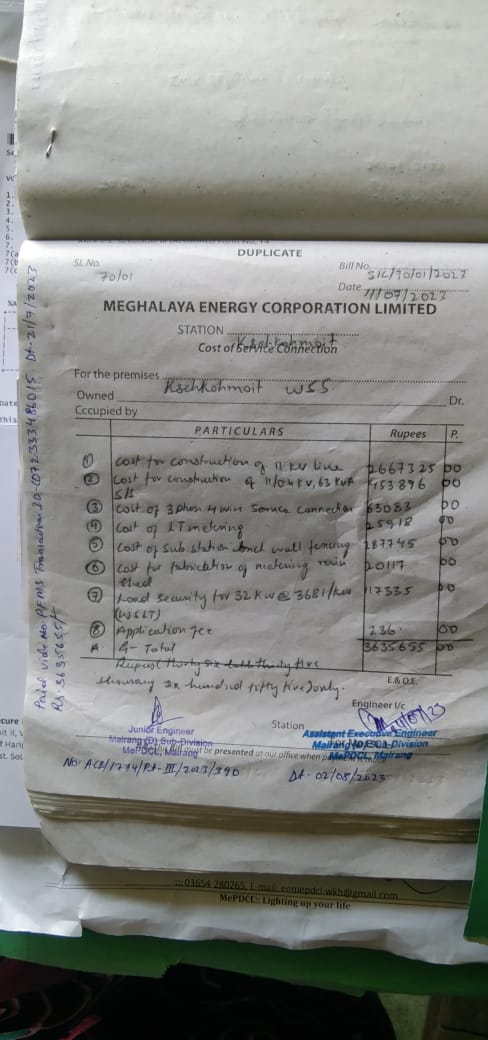 DUPLICATE
Sl. No. 70/01
Bill No. SIC/70/01/2023
Date. 11/07/2023
MEGHALAYA ENERGY CORPORATION LIMITED
STATION Ksehkohmoit
Cost of Service Connection
For the premises Ksehkohmoit WSS
Owned
Occupied by
Dr.
PARTICULARS Rupees P.
① Cost for construction of 11 KV line 2667325 00
② Cost for construction of 11/0.4 KV, 63 KVA S/S 453896 00
③ Cost of 3 phase 4 wire Service connection 63083 00
④ Cost of LT metering 25918 00
⑤ Cost of sub station wall fencing 287745 00
⑥ Cost for fabrication of metering room shed 20117 00
⑦ Load security for 32 KW @ 3681/KW (WSLT) 117335 00
⑧ Application fee 236 00
A G-Total 3635655 00
Rupees thirty six lakh thirty five
thousand six hundred fifty five) only.
E.& O.E.
Engineer I/c
Station
Junior Engineer
Mairang (D) Sub-Division
MePDCL, Mairang
Assistant Executive Engineer
Mairang (D) Sub-Division
MePDCL, Mairang
Bill must be presented at our office when
No. ACB/1774/Pt-III/2023/390 Dt. 02/08/2023
Paid vide No: PFMS Transaction ID-C072333486015 Dt-21/7/2023
Rs. 3635655/-
03654-280265, E-mail: eemepdcl.wkh@gmail.com
MePDCL: Lighting up your life